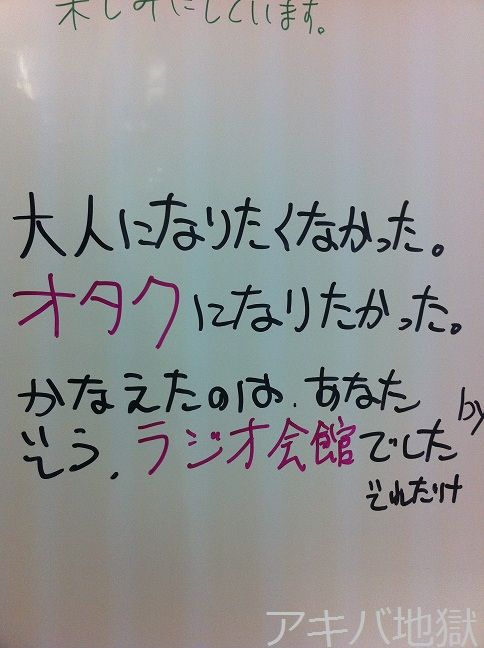 楽しみにしています。
大人になりたくなかった。
オタクになりたかった。
かなえたのは、あなた
そう、ラジオ会館でした
by
それだけ
アキバ地獄